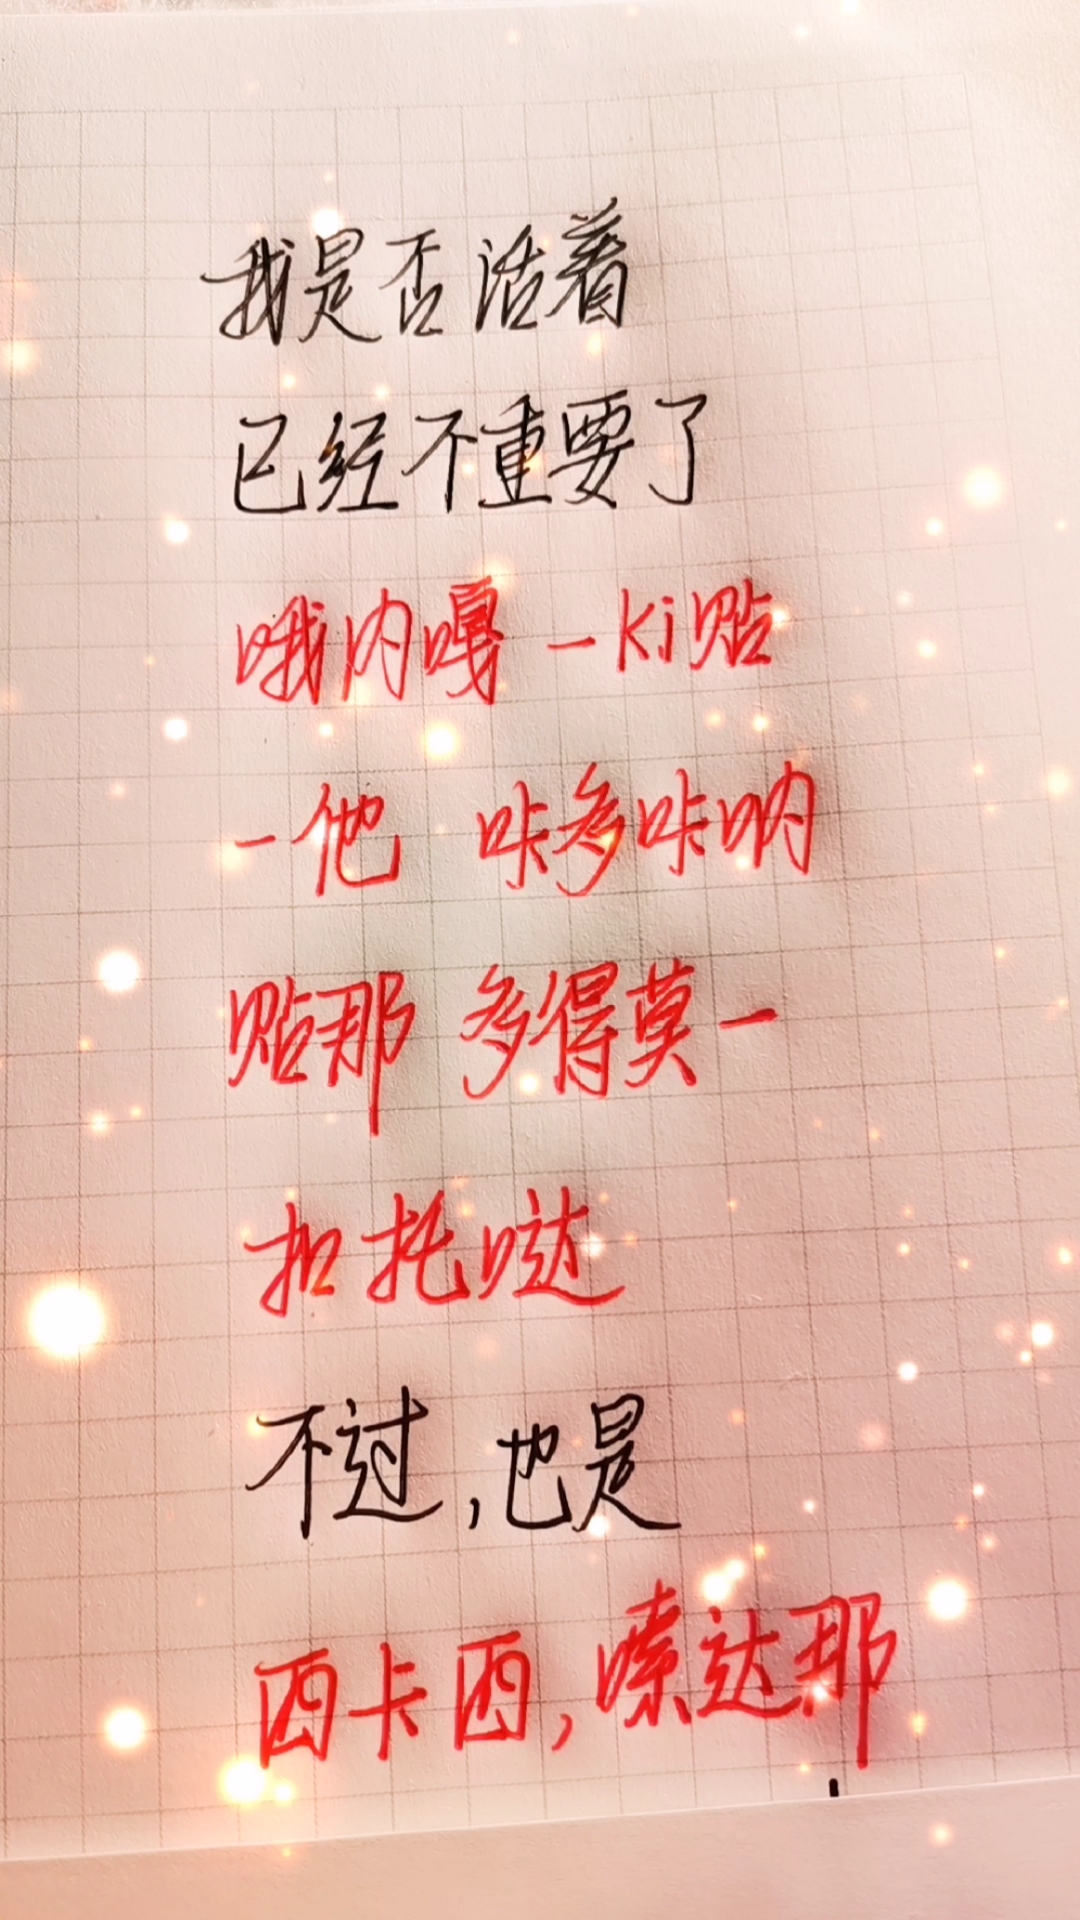 我是否活着
已经不重要了
哦内嘎一ki贴
一他 咔多咔呐
贴那 多得莫一
扣托哒
不过,也是
西卡西,嗦达那